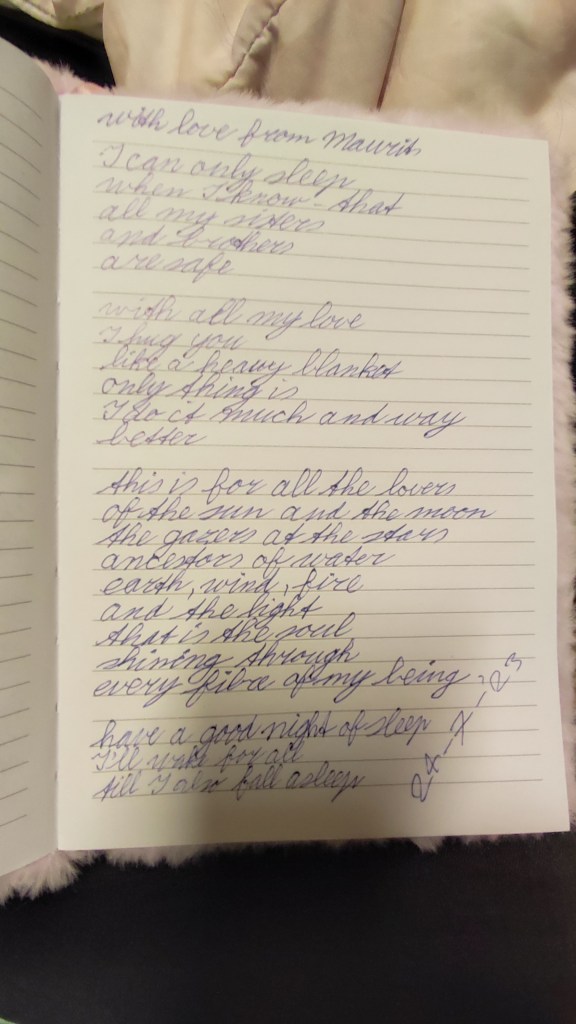 with love from Maurits
I can only sleep
when I know - that
all my sisters
and brothers
are safe
with all my love
I hug you
like a heavy blanket
only thing is
I do it much and way
better
this is for all the lovers
of the sun and the moon
the gazers at the stars
ancestors of water
earth, wind, fire
and the light
that is the soul
shining through
every fibre of my being
have a good night of sleep
I'll write for all
till I also fall asleep
24-X-23